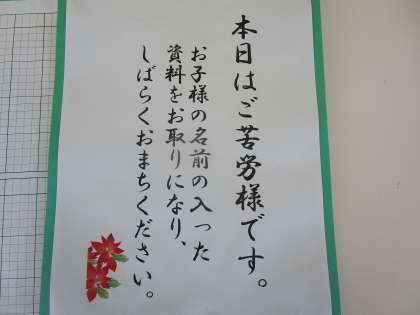 本日はご苦労様です。
お子様の名前の入った
資料をお取りになり、
しばらくおまちください。